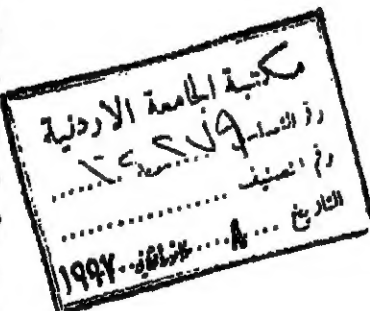 مكتبة الجامعة الاردنية
رقم التسلسل
رقم التصنيف ..................
التاريخ ... ٨ ... ١٩٩٧